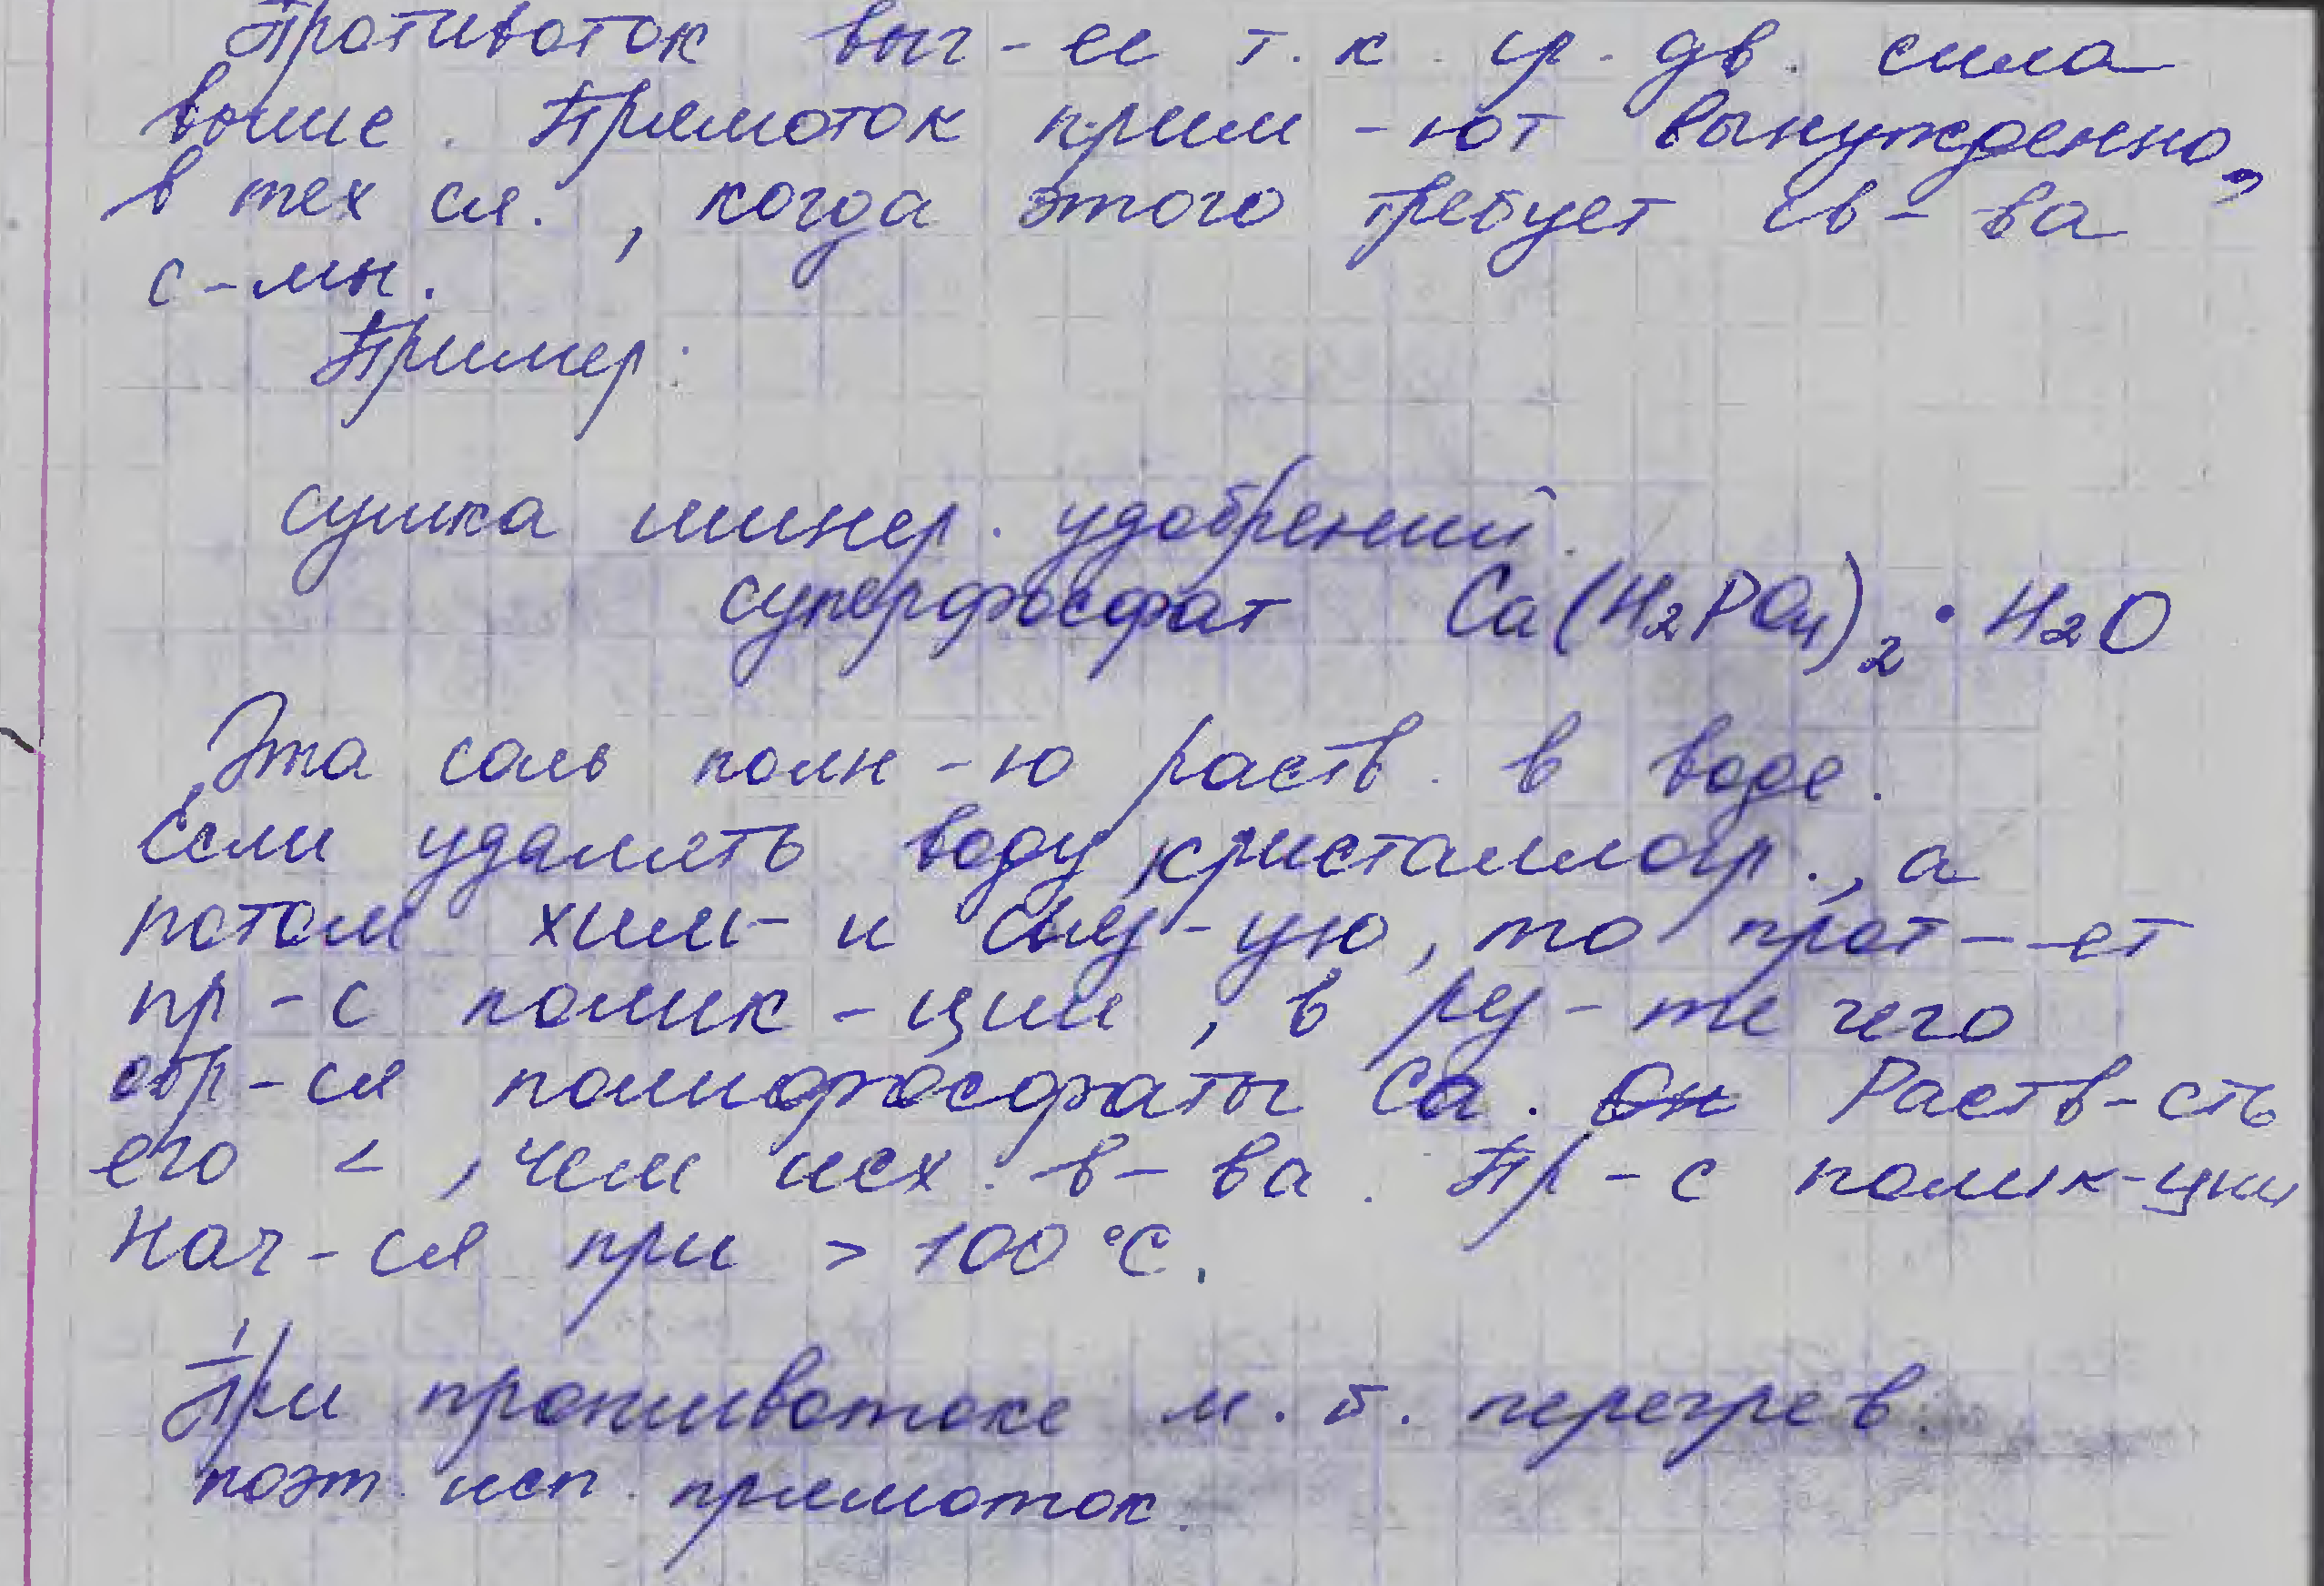 Противоток выг-ее т.к. ср. дв. сила
выше. Прямоток прим-ют вынужденно,
в тех сл., когда этого требует св-ва
с-мы.
Пример:
сушка минер. удобрений.
суперфосфат Ca(H₂PO₄)₂ · H₂O
Эта соль полн-ю раств. в воде.
Если удалять воду кристаллогр., а
потом хим-и связ-ую, то прот-ет
пр-с полик-ции, в рез-те чего
обр-ся полифосфаты Ca. Он Раств-сть
его <, чем исх. в-ва. Пр-с полик-ции
нач-ся при > 100 °C.
При противотоке м.б. перегрев.
поэт. исп. прямоток.